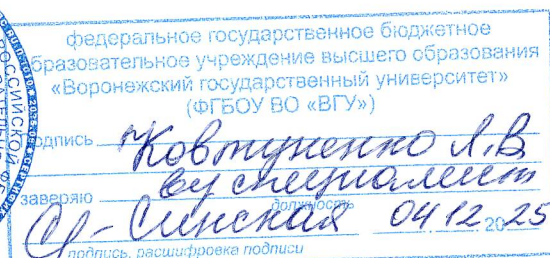 федеральное государственное бюджетное
образовательное учреждение высшего образования
«Воронежский государственный университет»
(ФГБОУ ВО «ВГУ»)
подпись Ковтуненко Л.В.
заверяю вд специалист
должность
Синская 04.12.2025
подпись, расшифровка подписи
РОССИЙСКОЙ